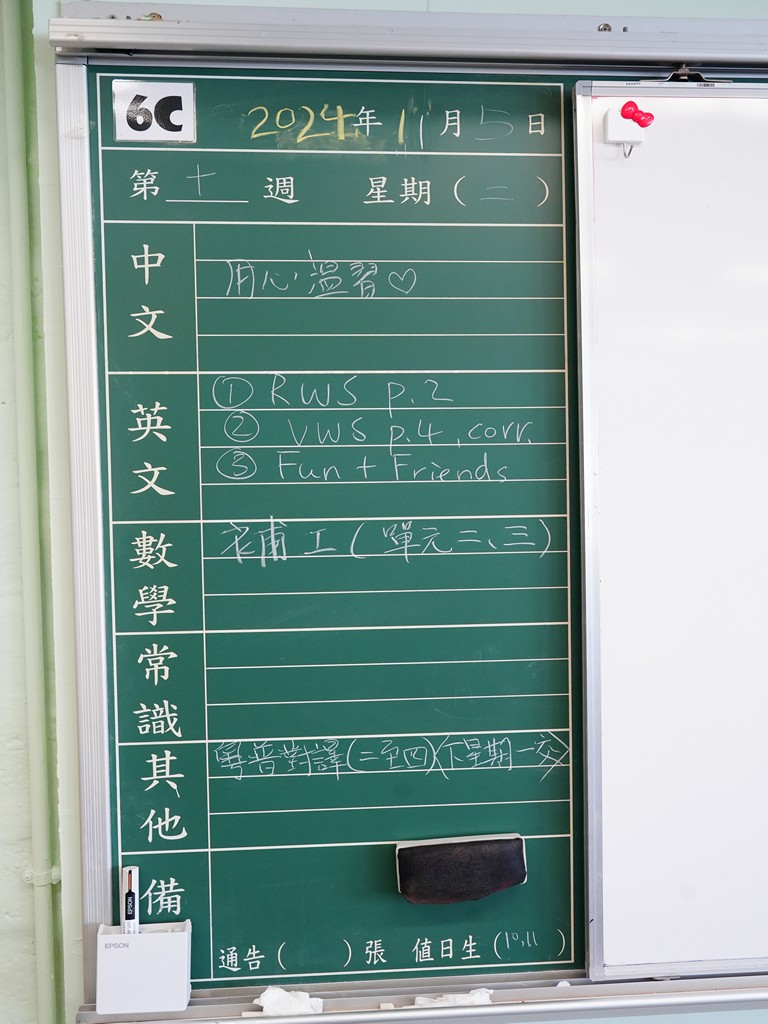 6C 2024年11月5日
第十週 星期(二)
中文
用心溫習♡
英文
① RWS p.2
② VWS p.4, corr.
③ Fun + Friends
數學
補工(單元二、三)
常識
其他
粵普對譯(二至四)(下星期一交)
備
通告( )張 值日生(10,11 )
EPSON
EPSON